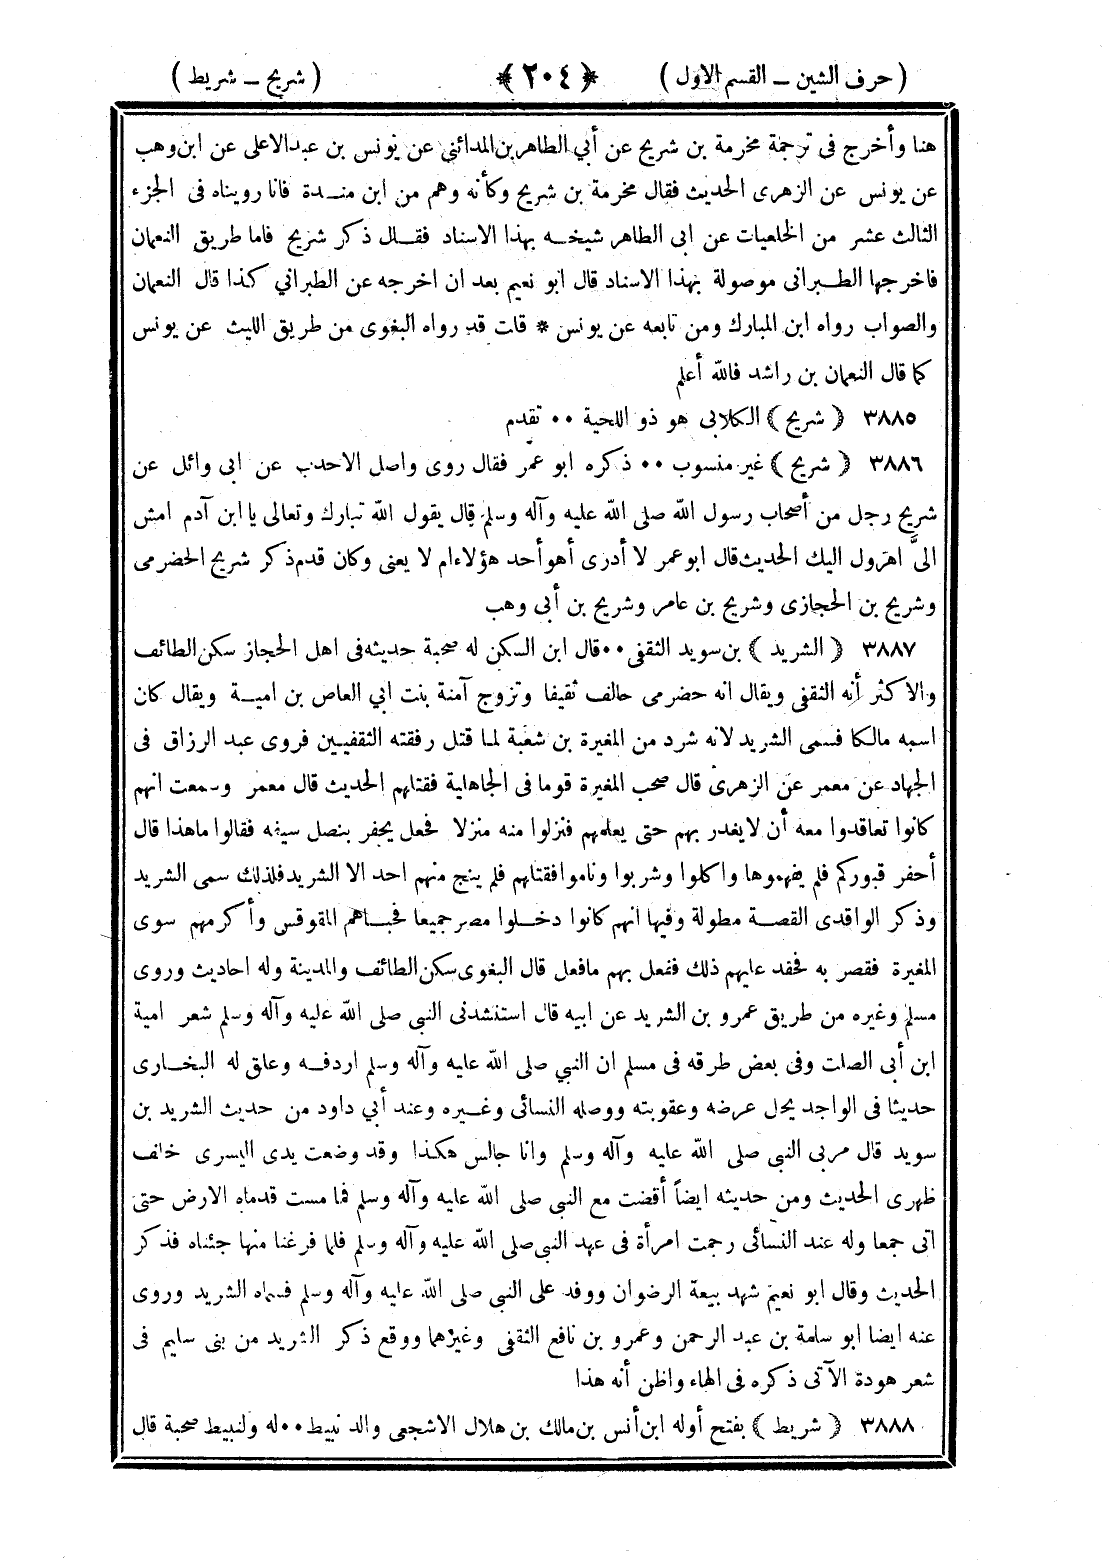 ( حرف الشين ــ القسم الاول ) ﴿ ٢٠٤ ﴾ ( شريح ــ شريط )
هنا وأخرج فى ترجمة مخرمة بن شريح عن أبي الطاهر بن المدائني عن يونس بن عبد الاعلى عن ابن وهب
عن يونس عن الزهرى الحديث فقال مخرمة بن شريح وكأنه وهم من ابن منـدة فانا رويناه فى الجزء
الثالث عشر من الخلعيات عن ابى الطاهر شيخـه بهذا الاسناد فقـال ذكر شريح فاما طريق النعمان
فاخرجها الطـبرانى موصولة بهذا الاسناد قال ابو نعيم بعد ان اخرجه عن الطبراني كذا قال النعمان
والصواب رواه ابن المبارك ومن تابعه عن يونس * قلت قد رواه البغوى من طريق الليث عن يونس
كما قال النعمان بن راشد فالله أعلم
٣٨٨٥ ﴿ شريح ﴾ الكلابى هو ذو اللحية ٠٠ تقدم
٣٨٨٦ ﴿ شريح ﴾ غير منسوب ٠٠ ذكره ابو عمر فقال روى واصل الاحدب عن ابى وائل عن
شريح رجل من أصحاب رسول الله صلى الله عليه وآله وسلم قال يقول الله تبارك وتعالى يا ابن آدم امش
الىَّ اهرول اليك الحديث قال ابو عمر لا أدرى أهو أحد هؤلاء ام لا يعنى وكان قدم ذكر شريح الحضرمى
وشريح بن الحجازى وشريح بن عامر وشريح بن أبى وهب
٣٨٨٧ ﴿ الشريد ﴾ بن سويد الثقفى ٠٠ قال ابن السكن له صحبة حديثه فى اهل الحجاز سكن الطائف
والاكثر أنه الثقفى ويقال انه حضرمى حالف ثقيفا وتزوج آمنة بنت ابي العاص بن اميـة ويقال كان
اسمه مالكا فسمى الشريد لانه شرد من المغيرة بن شعبة لما قتل رفقته الثقفيين فروى عبد الرزاق فى
الجهاد عن معمر عن الزهرى قال صحب المغيرة قوما فى الجاهلية فقتلهم الحديث قال معمر وسمعت انهم
كانوا تعاقدوا معه أن لا يغدر بهم حتى يعلمهم فنزلوا منه منزلا فجعل يحفر بنصل سيفه فقالوا ما هذا قال
أحفر قبوركم فلم يفهموها واكلوا وشربوا وناموا فقتلهم فلم ينج منهم احد الا الشريد فلذلك سمى الشريد
وذكر الواقدى القصـة مطولة وفيها انهم كانوا دخـلوا مصر جميعا فحبـاهم المقوقس وأكرمهم سوى
المغيرة فقصر به فحقد عليهم ذلك ففعل بهم ما فعل قال البغوى سكن الطائف والمدينة وله احاديث وروى
مسلم وغيره من طريق عمرو بن الشريد عن ابيه قال استنشدنى النبى صلى الله عليه وآله وسلم شعر امية
ابن أبى الصلت وفى بعض طرقه فى مسلم ان النبي صلى الله عليه وآله وسلم اردفـه وعلق له البخـارى
حديثا فى الواجد يحل عرضه وعقوبته ووصله النسائى وغـيره وعند أبي داود من حديث الشريد بن
سويد قال مر بى النبى صلى الله عليه وآله وسلم وانا جالس هكذا وقد وضعت يدى اليسرى خلف
ظهرى الحديث ومن حديثه ايضاً أفضت مع النبي صلى الله عليه وآله وسلم فما مست قدماه الارض حتى
اتى جمعا وله عند النسائى رجمت امرأة فى عهد النبى صلى الله عليه وآله وسلم فلما فرغنا منها جئناه فذكر
الحديث وقال ابو نعيم شهد بيعة الرضوان ووفد على النبى صلى الله عليه وآله وسلم فسماه الشريد وروى
عنه ايضا ابو سلمة بن عبد الرحمن وعمرو بن نافع الثقفى وغيرهما ووقع ذكر الشريد من بنى سليم فى
شعر هودة الآتى ذكره فى الهاء واظن أنه هذا
٣٨٨٨ ﴿ شريط ﴾ بفتح أوله ابن أنس بن مالك بن هلال الاشجعى والد نبيط ٠٠ له ولنبيط صحبة قال